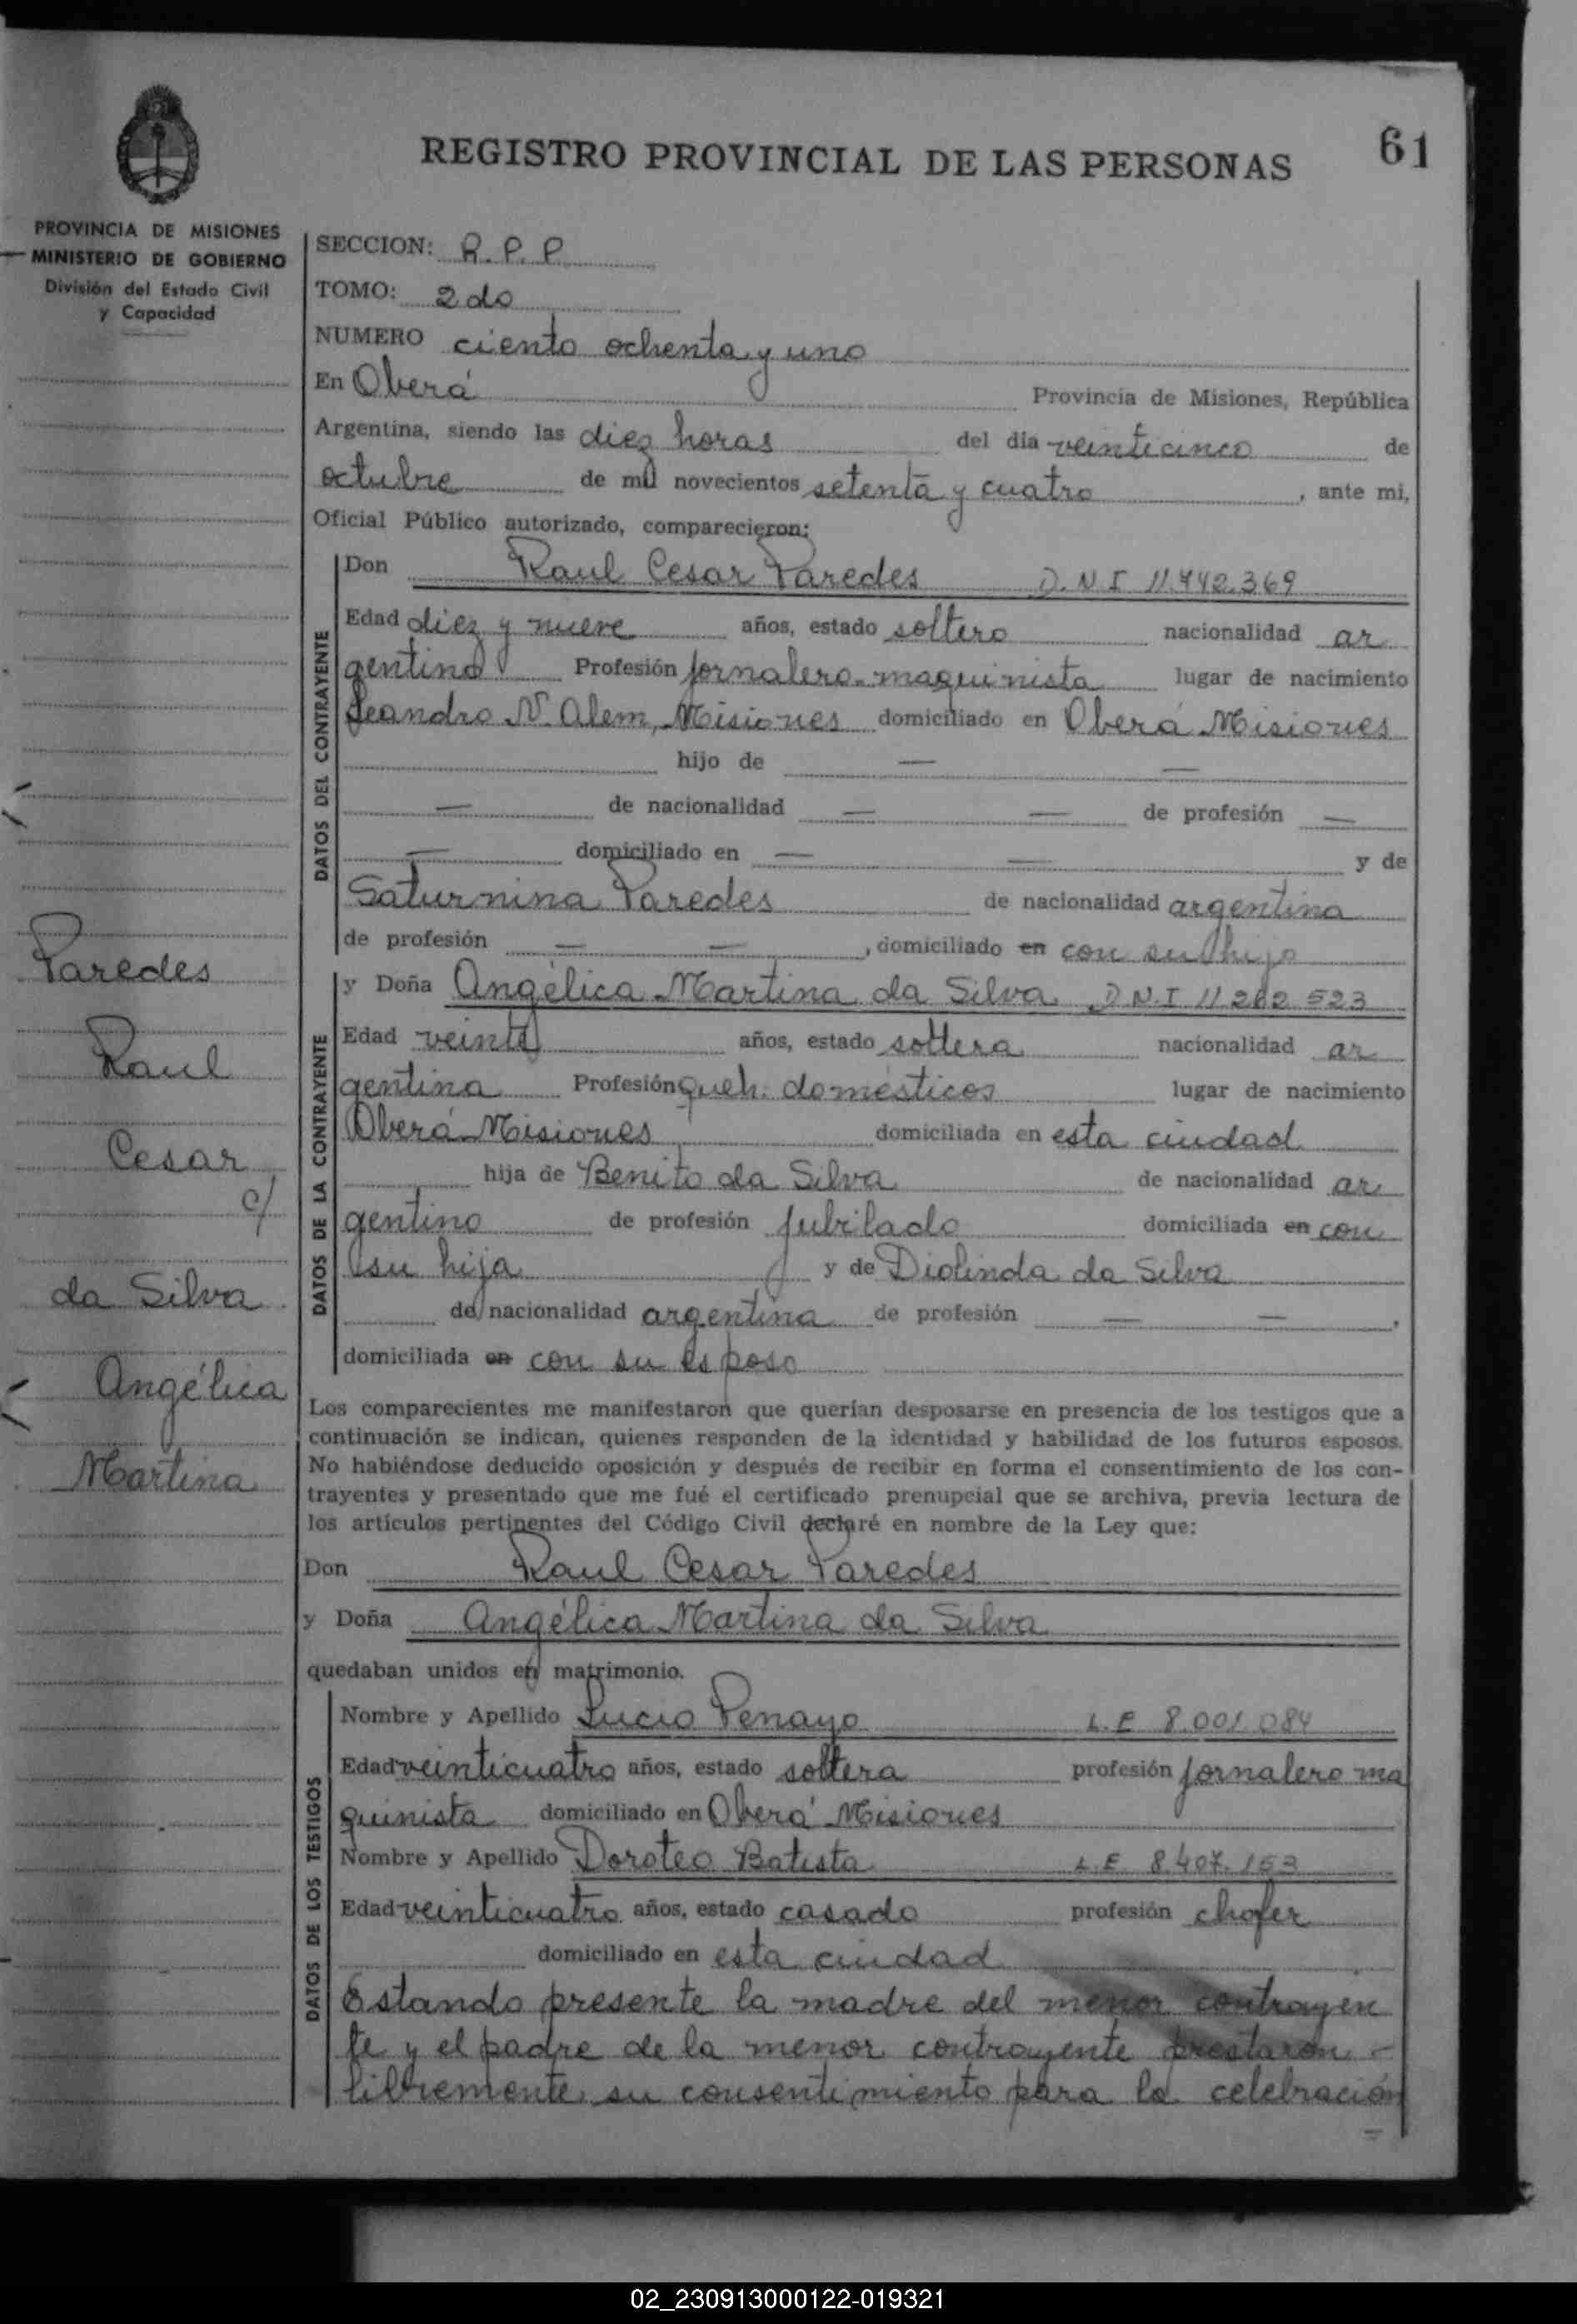 REGISTRO PROVINCIAL DE LAS PERSONAS
61
PROVINCIA DE MISIONES
MINISTERIO DE GOBIERNO
División del Estado Civil
y Capacidad
Paredes
Raul
Cesar
c/
da Silva
Angélica
Martina
SECCION: R. P. P
TOMO: 2do
NUMERO ciento ochenta y uno
En Oberá Provincia de Misiones, República
Argentina, siendo las diez horas del día veinticinco de
octubre de mil novecientos setenta y cuatro, ante mi,
Oficial Público autorizado, comparecieron:
DATOS DEL CONTRAYENTE
Don Raul Cesar Paredes D.N.I 11.442.369
Edad diez y nueve años, estado soltero nacionalidad ar
gentino Profesión jornalero-maquinista lugar de nacimiento
Leandro N. Alem, Misiones domiciliado en Oberá Misiones
hijo de — —
— de nacionalidad — — de profesión —
— domiciliado en — — y de
Saturnina Paredes de nacionalidad argentina
de profesión — —, domiciliado en con su hijo
DATOS DE LA CONTRAYENTE
y Doña Angélica Martina da Silva D.N.I 11 282 523
Edad veinte años, estado soltera nacionalidad ar
gentina Profesión queh. domésticos lugar de nacimiento
Oberá Misiones domiciliada en esta ciudad
hija de Benito da Silva de nacionalidad ar
gentino de profesión jubilado domiciliada en con
su hija y de Diolinda da Silva
de nacionalidad argentina de profesión — —,
domiciliada en con su esposo
Los comparecientes me manifestaron que querían desposarse en presencia de los testigos que a
continuación se indican, quienes responden de la identidad y habilidad de los futuros esposos.
No habiéndose deducido oposición y después de recibir en forma el consentimiento de los con-
trayentes y presentado que me fué el certificado prenupcial que se archiva, previa lectura de
los artículos pertinentes del Código Civil declaré en nombre de la Ley que:
Don Raul Cesar Paredes
y Doña Angélica Martina da Silva
quedaban unidos en matrimonio.
DATOS DE LOS TESTIGOS
Nombre y Apellido Lucio Penayo L.E 8.001.084
Edad veinticuatro años, estado soltera profesión jornalero ma
quinista domiciliado en Oberá Misiones
Nombre y Apellido Doroteo Batista L.E 8.407.153
Edad veinticuatro años, estado casado profesión chofer
domiciliado en esta ciudad
Estando presente la madre del menor contrayen
te y el padre de la menor contrayente prestaron -
libremente su consentimiento para la celebración
02_230913000122-019321